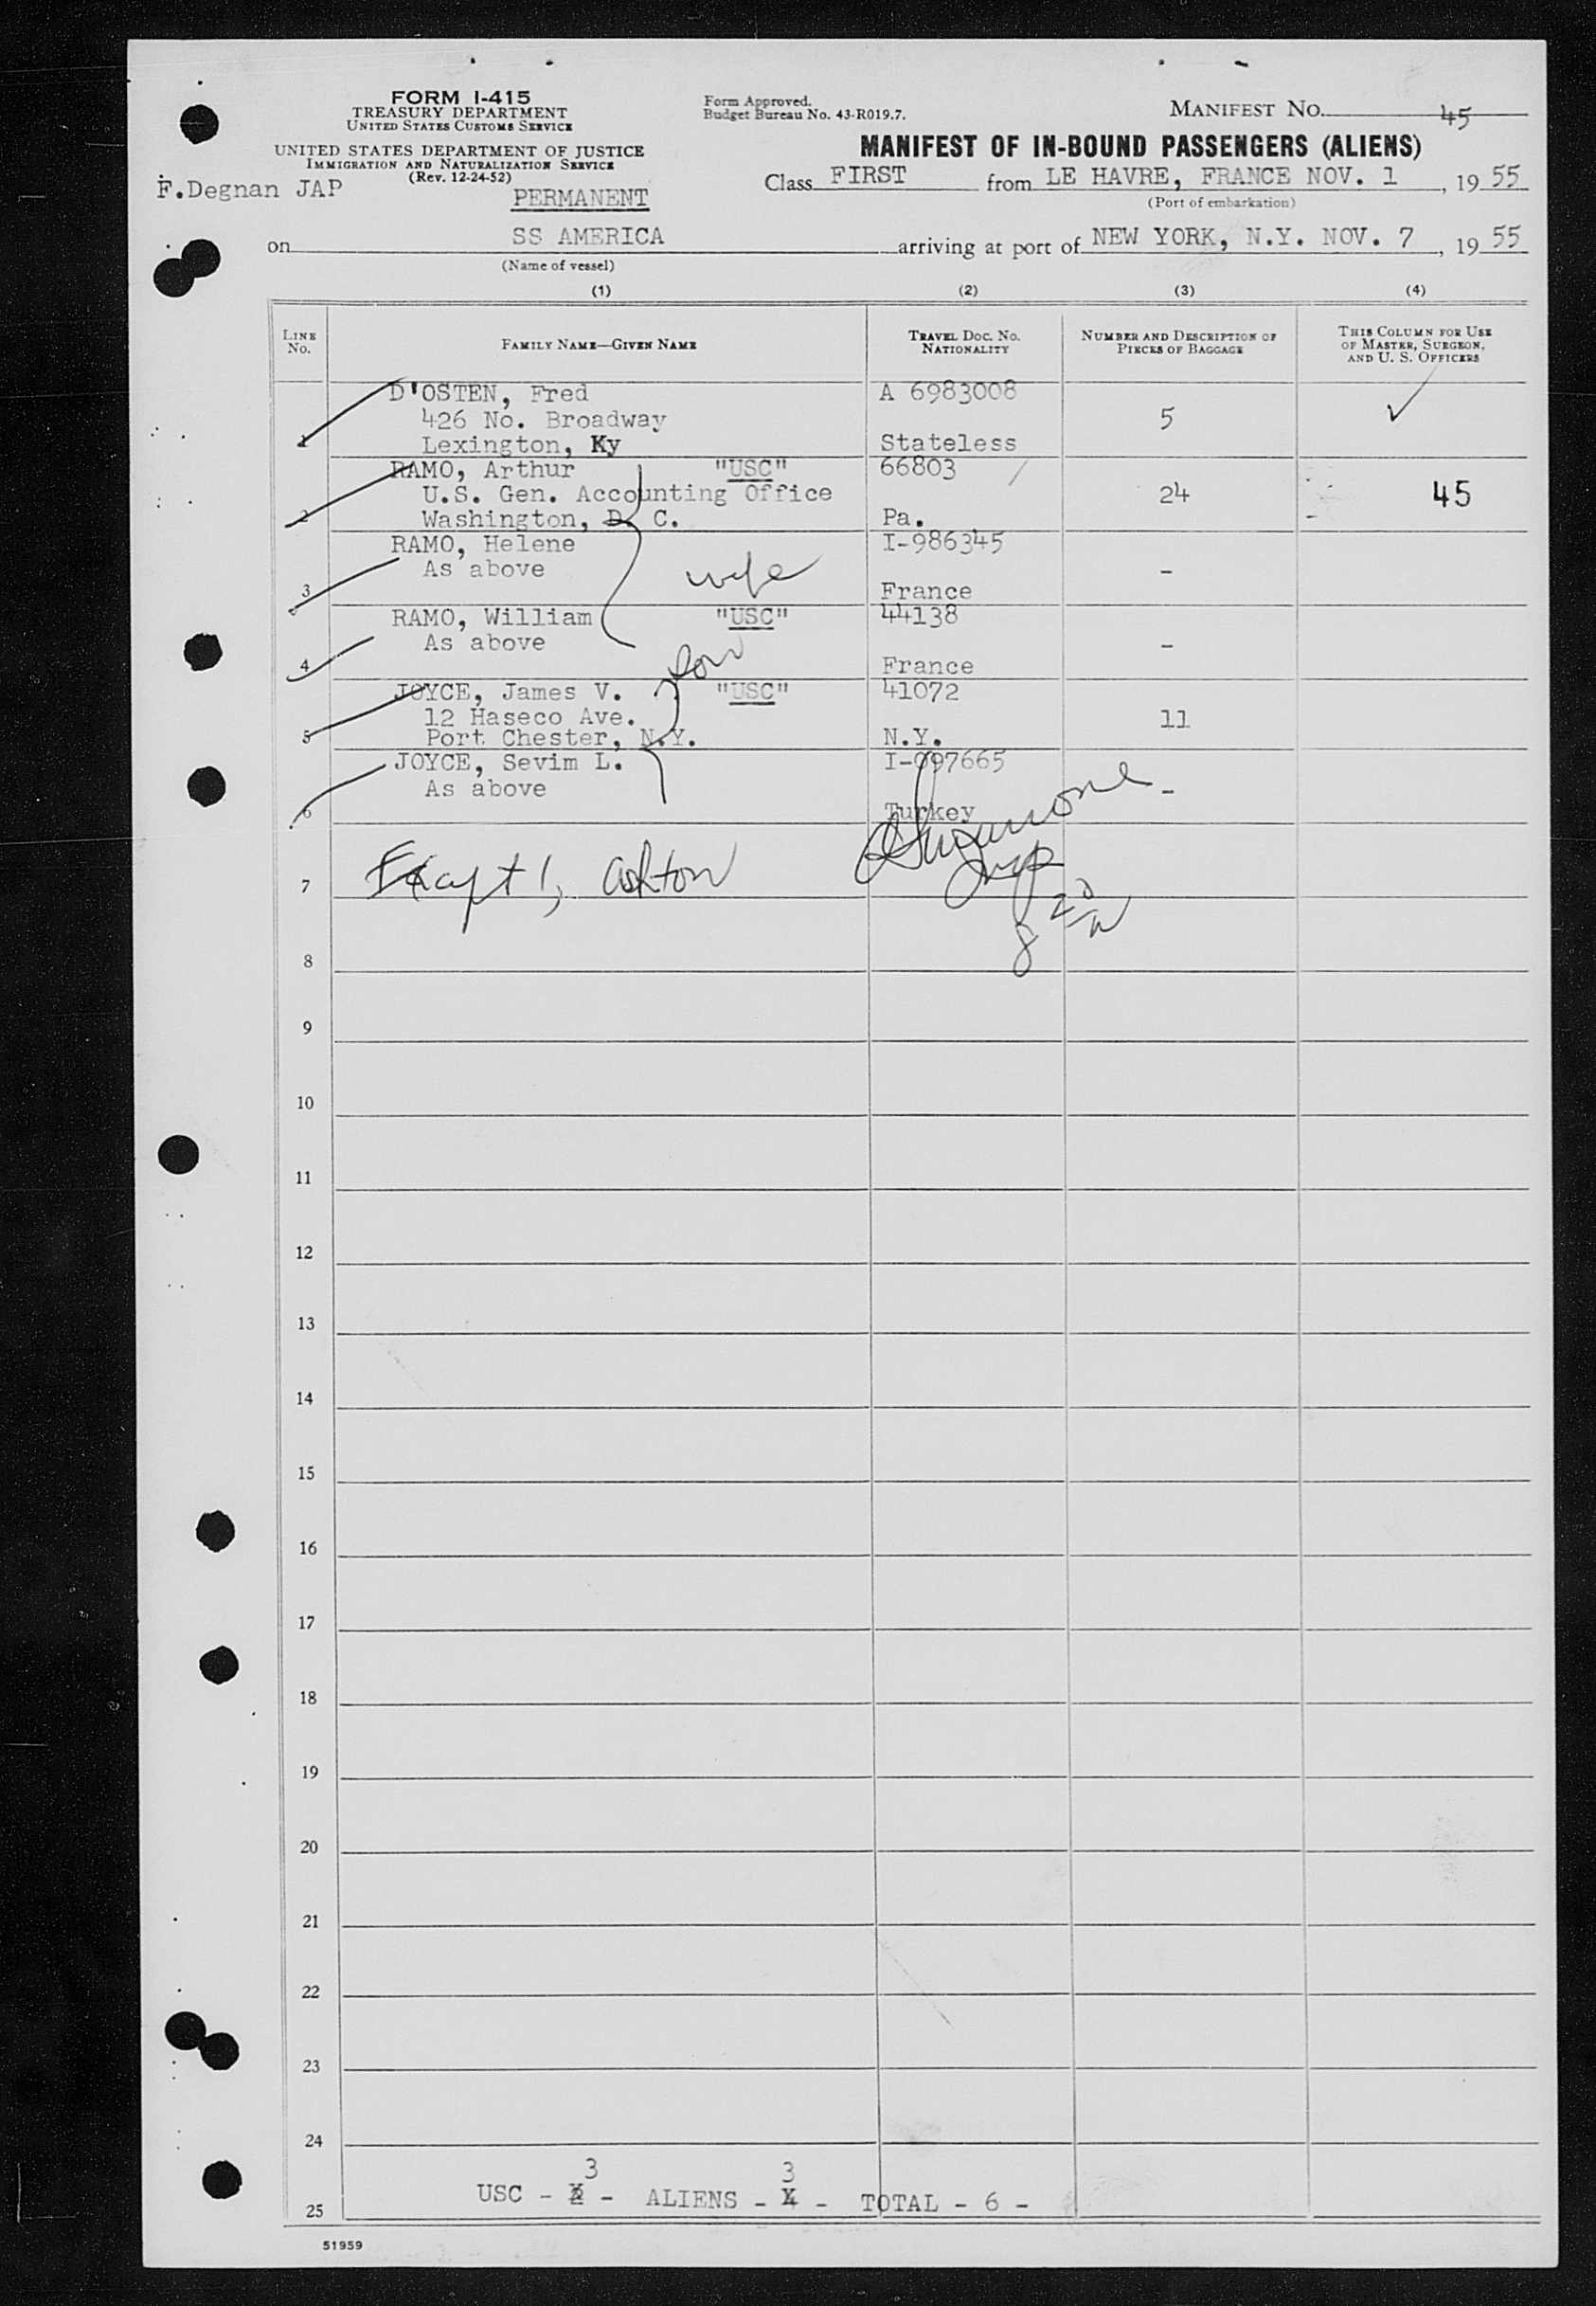 FORM I-415
TREASURY DEPARTMENT
UNITED STATES CUSTOMS SERVICE
UNITED STATES DEPARTMENT OF JUSTICE
IMMIGRATION AND NATURALIZATION SERVICE
(Rev. 12-24-52)
F.Degnan JAP
PERMANENT
Form Approved.
Budget Bureau No. 43-R019.7.
MANIFEST NO. 45
MANIFEST OF IN-BOUND PASSENGERS (ALIENS)
Class FIRST from LE HAVRE, FRANCE NOV. 1, 19 55
(Port of embarkation)
on SS AMERICA arriving at port of NEW YORK, N.Y. NOV. 7, 19 55
(Name of vessel)
(1) (2) (3) (4)
LINE No.
FAMILY NAME—GIVEN NAME
TRAVEL DOC. NO. NATIONALITY
NUMBER AND DESCRIPTION OF PIECES OF BAGGAGE
THIS COLUMN FOR USE OF MASTER, SURGEON, AND U. S. OFFICERS
D'OSTEN, Fred A 6983008
426 No. Broadway 5 ✓
1 Lexington, Ky Stateless
RAMO, Arthur "USC" 66803 /
U.S. Gen. Accounting Office 24 45
2 Washington, D. C. Pa.
RAMO, Helene I-986345
As above wife -
3 France
RAMO, William "USC" 44138
As above son -
4 France
JOYCE, James V. "USC" 41072
12 Haseco Ave. 11
5 Port Chester, N.Y. N.Y.
JOYCE, Sevim L. I-097665
As above -
6 Turkey
7
8
9
10
11
12
13
14
15
16
17
18
19
20
21
22
23
24
3 3
25 USC - 2 - ALIENS - 4 - TOTAL - 6 -
51959